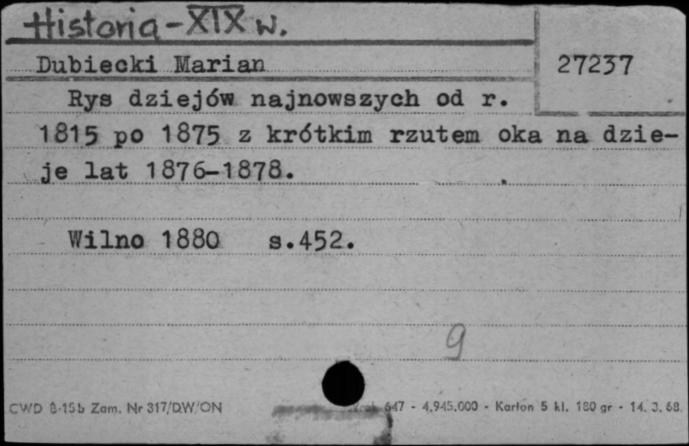 Historia - XIX w.
Dubiecki Marian
27237
Rys dziejów najnowszych od r.
1815 po 1875 z krótkim rzutem oka na dzie-
je lat 1876-1878.
Wilno 1880 s.452.
9
CWD Zam. Nr 317/DW/ON
647 - 4.945.000 - Karton 5 kl. 180 gr - 14. 3. 68.